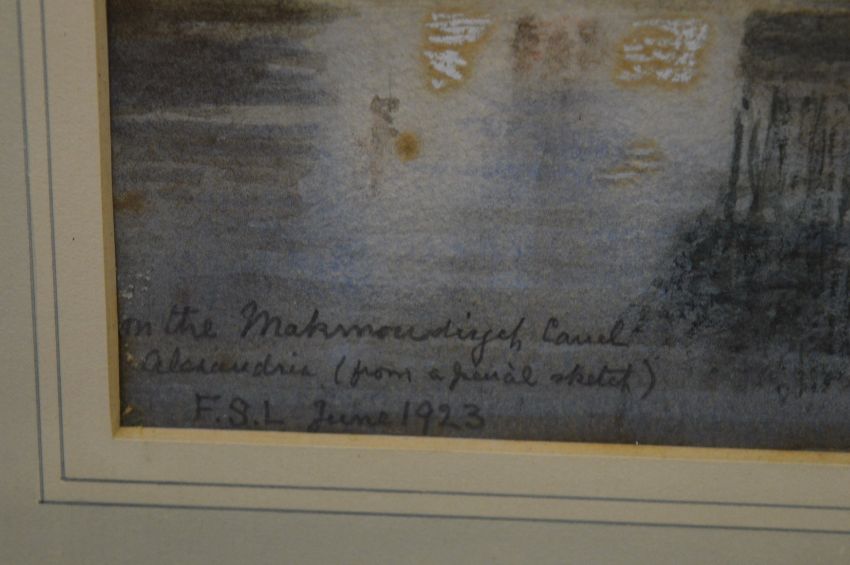 on the Makmoudiyeh Canel
Alexandria (from a pencil sketch)
F.S.L June 1923